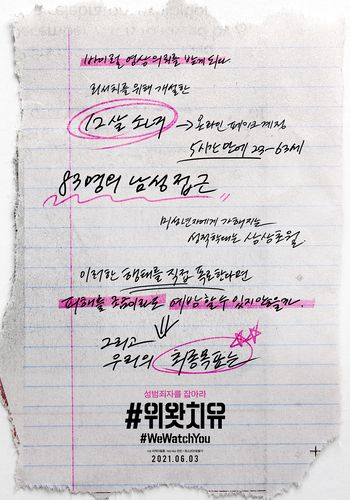 바이럴 영상 의뢰를 받게 되다
리서치를 위해 개설한
12살 소녀 → 온라인 페이크 계정
5시간 만에 23-63세
83명의 남성 접근
미성년자에게 가해지는
성적학대는 상상초월
이러한 행태를 직접 폭로한다면
피해를 조금이라도 예방할 수 있지 않을까.
그리고
우리의 최종목표는
성범죄자를 잡아라
#위왓치유
#WeWatchYou
2021.06.03